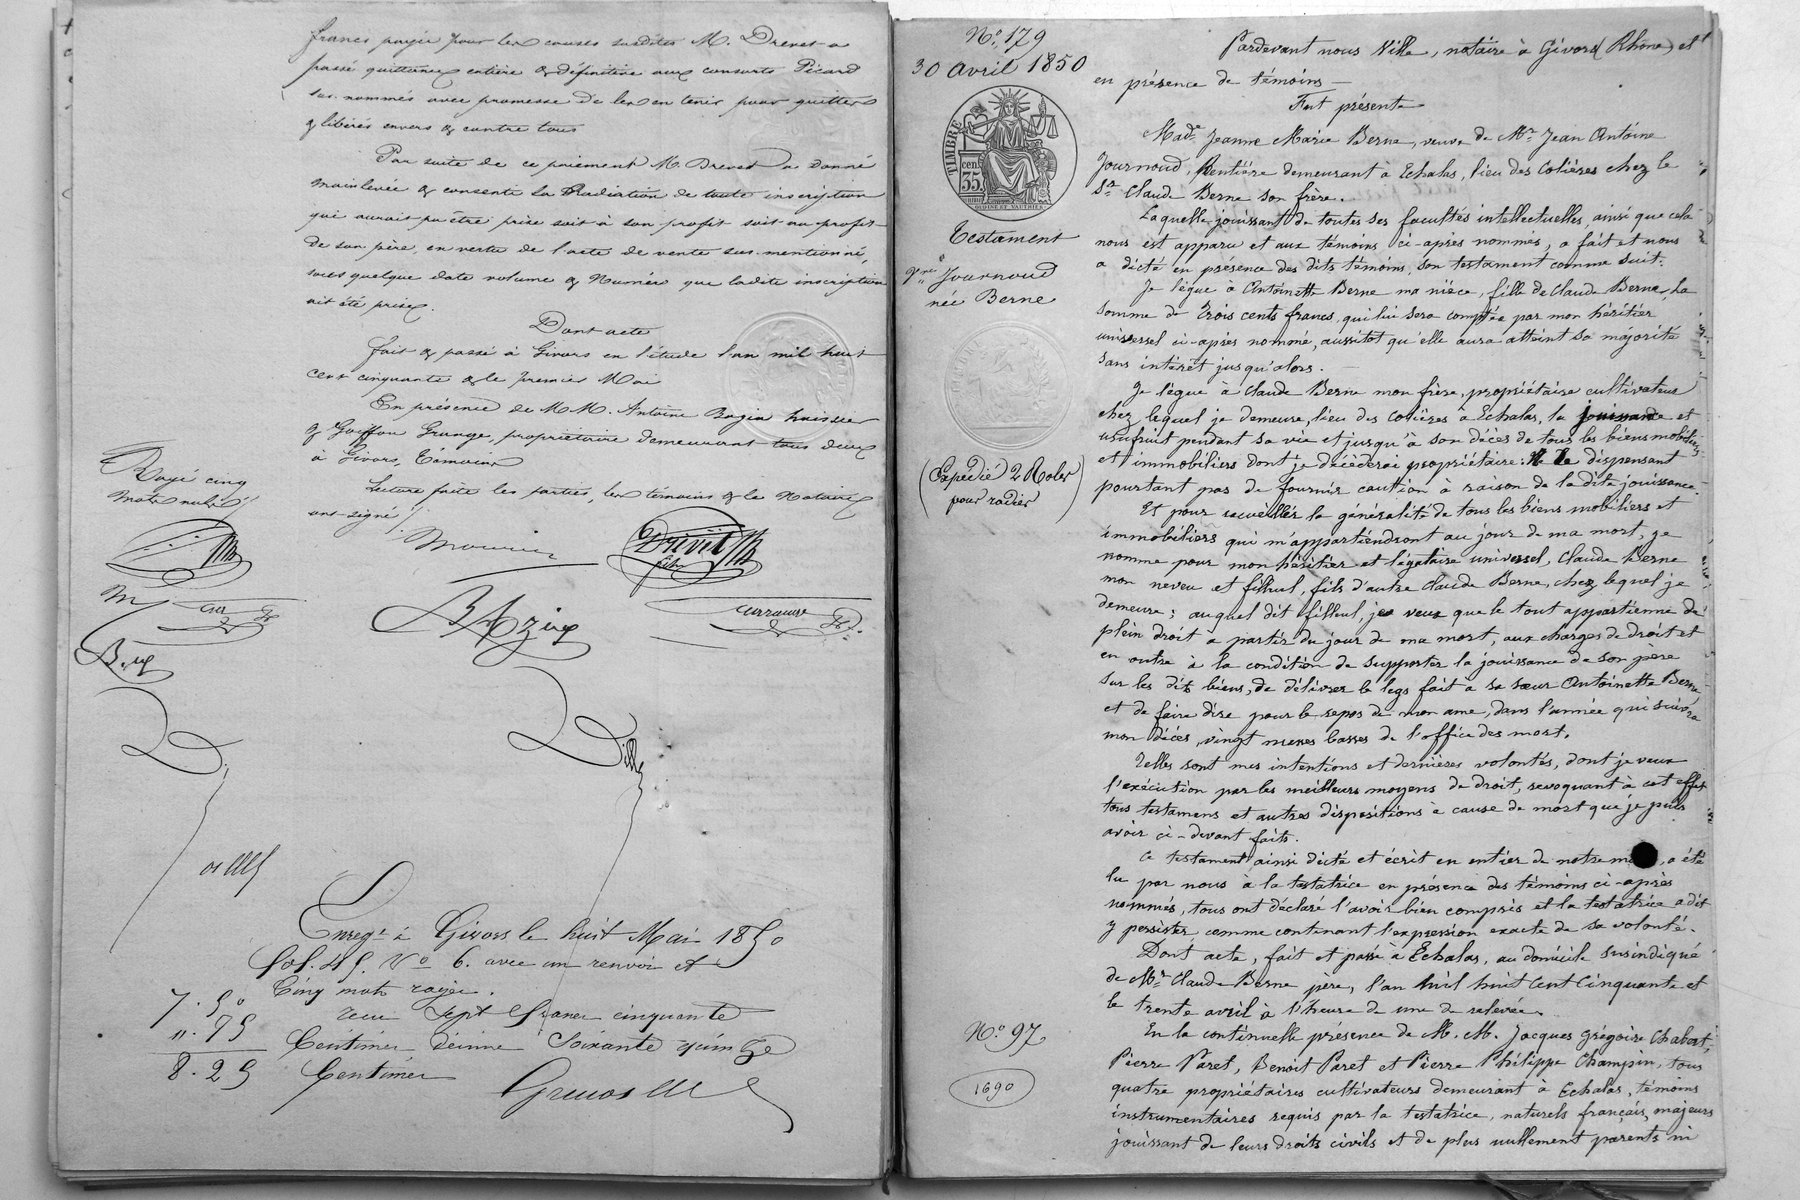 francs payée pour les causes susdites M. Drevet a
passé quittance entière & définitive aux consorts Picard
sus-nommés avec promesse de les en tenir pour quittes
& libérés envers & contre tous
Par suite de ce paiement M. Drevet a donné
mainlevée & consenti la Radiation de toute inscription
qui aurait pu être prise soit à son profit soit au profit
de son père, en vertu de l'acte de vente sus-mentionné,
sous quelque date volume & Numéro que ladite inscription
ait été prise.
Dont acte
fait & passé à Givors en l'étude l'an mil huit
cent cinquante & le premier Mai
En présence de MM. Antoine Bazin huissier
& Goiffon Grange, propriétaire demeurant tous deux
à Givors, Témoins
Lecture faite les parties, les témoins & le Notaire
ont signé
Rayé cinq
mots nuls
Drevet
fils
BAzin
Ville
Enreg.t à Givors le huit Mai 1850
fol. 45. V° 6. avec un renvoi et
Cinq mots rayés.
reçu Sept francs cinquante
Centimes décime Soixante quinze
Centimes
7. 50
". 75
8. 25
N° 179
30 Avril 1850
TIMBRE
cen
35
Testament
Vve Journoud
née Berne
(Expédié 2 Roles
pour radier)
N° 97
1690
Pardevant nous Ville, notaire à Givors (Rhône) et
en présence de témoins —
Fut présente
Made Jeanne Marie Berne, veuve de Mr Jean Antoine
Journoud, Rentière demeurant à Echalas, lieu des Cotières chez le
Sr Claude Berne son frère.
Laquelle jouissant de toutes ses facultés intellectuelles, ainsi que cela
nous est apparu et aux témoins ci-après nommés, a fait et nous
a dicté en présence des dits témoins, son testament comme suit.
Je lègue à Antoinette Berne ma nièce, fille de Claude Berne, la
somme de Trois cents francs, qui lui sera comptée par mon héritier
universel ci-après nommé, aussitôt qu'elle aura atteint sa majorité
sans intérêt jusqu'alors. —
Je lègue à Claude Berne mon frère, propriétaire cultivateur
chez lequel je demeure, lieu des Cotières à Echalas, la jouissance et
usufruit pendant sa vie et jusqu'à son décès de tous les biens mobiliers
et immobiliers dont je décèderai propriétaire: Le dispensant
pourtant pas de fournir caution à raison de la dite jouissance.
Et pour recueillir la généralité de tous les biens mobiliers et
immobiliers qui m'appartiendront au jour de ma mort, je
nomme pour mon héritier et légataire universel, Claude Berne
mon neveu et filleul, fils d'autre Claude Berne, chez lequel je
demeure; auquel dit filleul, je veux que le tout appartienne de
plein droit à partir du jour de ma mort, aux charges de droit et
en outre à la condition de supporter la jouissance de son père
sur les dits biens, de délivrer le legs fait à sa sœur Antoinette Berne
et de faire dire pour le repos de mon ame, dans l'année qui suivra
mon décès, vingt messes basses de l'office des mort.
Telles sont mes intentions et dernières volontés, dont je veux
l'exécution par les meilleurs moyens de droit, revoquant à cet effet
tous testamens et autres dispositions à cause de mort que je puis
avoir ci-devant faits.
Ce testament ainsi dicté et écrit en entier de notre m , a été
lu par nous à la testatrice en présence des témoins ci-après
nommés, tous ont déclaré l'avoir bien compris et la testatrice a dit
y persister comme contenant l'expression exacte de sa volonté.
Dont acte, fait et passé à Echalas, au domicile susindiqué
de Mr Claude Berne père, l'an Mil huit Cent Cinquante et
le trente avril à l'heure de une de relevée.
En la continuelle présence de M. M. Jacques Grégoire Chabert,
Pierre Paret, Benoit Paret et Pierre Philippe Champin, tous
quatre propriétaires cultivateurs demeurant à Echalas, témoins
instrumentaires requis par la testatrice, naturels français, majeurs
jouissant de leurs droits civils et de plus nullement parents ni